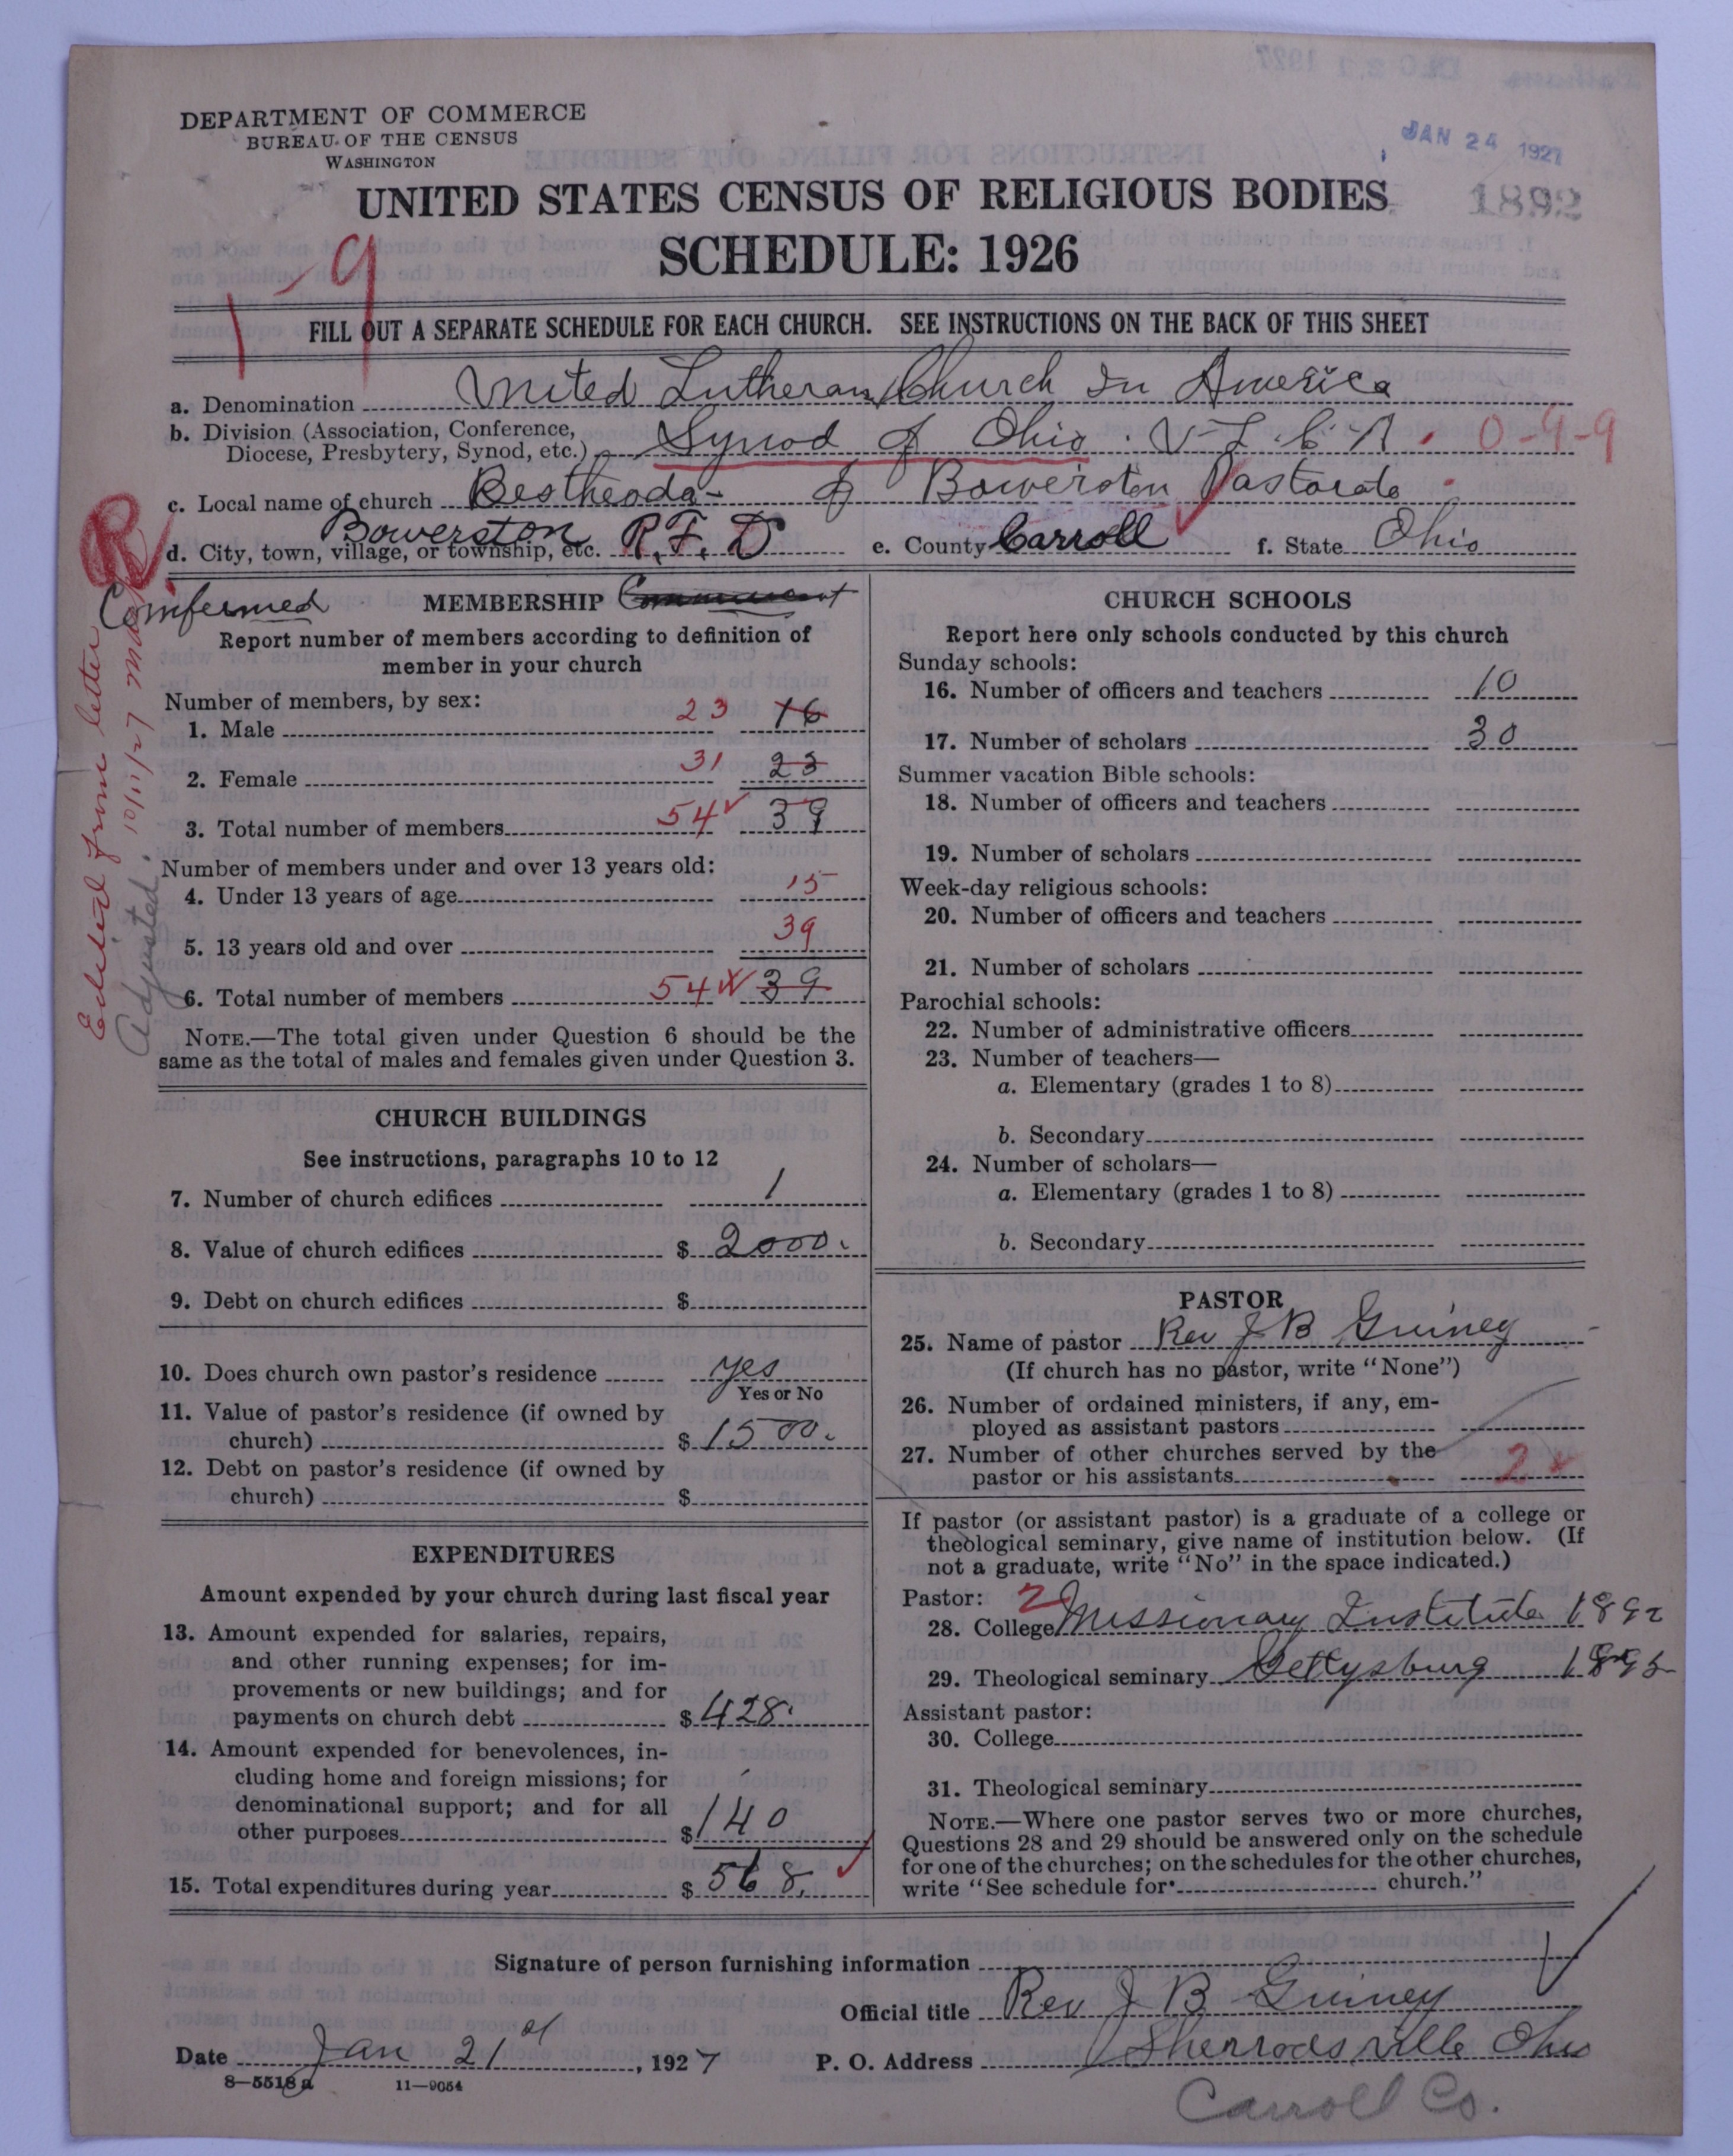 DEPARTMENT OF COMMERCE
BUREAU OF THE CENSUS
WASHINGTON
JAN 24 1927
1892
UNITED STATES CENSUS OF RELIGIOUS BODIES
SCHEDULE: 1926
1-9
FILL OUT A SEPARATE SCHEDULE FOR EACH CHURCH. SEE INSTRUCTIONS ON THE BACK OF THIS SHEET
a. Denomination United Lutheran Church In America
b. Division (Association, Conference, Diocese, Presbytery, Synod, etc.) Synod of Ohio. U-L.C.A. 0-9-9
c. Local name of church Bestheada- of Bowerston Pastorate
d. City, town, village, or township, etc. Bowerston R.F.D e. County Carroll f. State Ohio
R
Edited from letter
10/11/27
Adjusted.
Comfermed MEMBERSHIP
Report number of members according to definition of
member in your church
Number of members, by sex:
1. Male 23 16
2. Female 31 23
3. Total number of members 54 39
Number of members under and over 13 years old:
4. Under 13 years of age 15
5. 13 years old and over 39
6. Total number of members 54 39
NOTE.—The total given under Question 6 should be the
same as the total of males and females given under Question 3.
CHURCH BUILDINGS
See instructions, paragraphs 10 to 12
7. Number of church edifices 1
8. Value of church edifices $ 2000.
9. Debt on church edifices $
10. Does church own pastor's residence yes
Yes or No
11. Value of pastor's residence (if owned by
church) $ 1500.
12. Debt on pastor's residence (if owned by
church) $
EXPENDITURES
Amount expended by your church during last fiscal year
13. Amount expended for salaries, repairs,
and other running expenses; for im-
provements or new buildings; and for
payments on church debt $ 428.
14. Amount expended for benevolences, in-
cluding home and foreign missions; for
denominational support; and for all
other purposes $ 140
15. Total expenditures during year $ 568.
CHURCH SCHOOLS
Report here only schools conducted by this church
Sunday schools:
16. Number of officers and teachers 10
17. Number of scholars 30
Summer vacation Bible schools:
18. Number of officers and teachers
19. Number of scholars
Week-day religious schools:
20. Number of officers and teachers
21. Number of scholars
Parochial schools:
22. Number of administrative officers
23. Number of teachers—
a. Elementary (grades 1 to 8)
b. Secondary
24. Number of scholars—
a. Elementary (grades 1 to 8)
b. Secondary
PASTOR
25. Name of pastor Rev J B Guiney
(If church has no pastor, write "None")
26. Number of ordained ministers, if any, em-
ployed as assistant pastors
27. Number of other churches served by the
pastor or his assistants 2
If pastor (or assistant pastor) is a graduate of a college or
theological seminary, give name of institution below. (If
not a graduate, write "No" in the space indicated.)
Pastor: 2
28. College Missionary Institute 1892
29. Theological seminary Gettysburg 1895
Assistant pastor:
30. College
31. Theological seminary
NOTE.—Where one pastor serves two or more churches,
Questions 28 and 29 should be answered only on the schedule
for one of the churches; on the schedules for the other churches,
write "See schedule for church."
Signature of person furnishing information
Official title Rev J B Guiney
Date Jan 21st, 1927 P. O. Address Sherrodsville Ohio
8—5518 a 11—9054
Carroll Co.